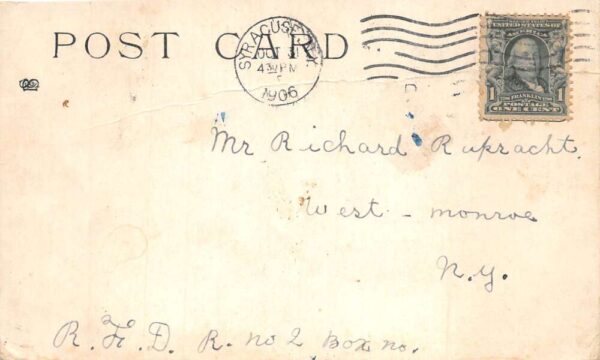 POST CARD
SYRACUSE, N.Y.
OCT 31
430 PM
1906
UNITED STATES OF AMERICA
FRANKLIN
1 POSTAGE 1
ONE CENT
Mr Richard Rupracht.
West - monroe
N.y.
R. F. D. R. no 2 Box no.